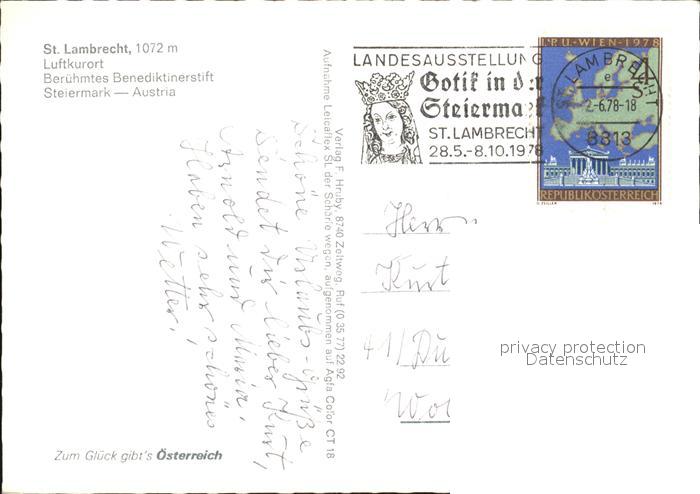 St. Lambrecht, 1072 m
Luftkurort
Berühmtes Benediktinerstift
Steiermark — Austria
LANDESAUSSTELLUNG
Gotik in der
Steiermark
ST. LAMBRECHT
28.5.-8.10.1978
I.P.U.-WIEN-1978
S
ST. LAMBRECHT
2.-6.78-18
8813
REPUBLIK ÖSTERREICH
1978
Verlag F. Hruby, 8740 Zeltweg, Ruf (0 35 77) 22 92
Aufnahme Leicaflex SL der Schärfe wegen, aufgenommen auf Agfa Color CT 18
Schöne Urlaubs-Grüße
sendet dir lieber Kurt,
Arnold und Maria!
Haben sehr schönes
Wetter!
Herrn
Kurt
41/Du
privacy protection
Datenschutz
Zum Glück gibt's Österreich